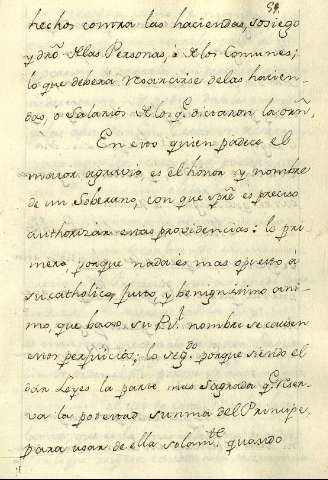 94.
hechos contra las haciendas, sosiego
y dro. de las Personas, ò de los Comunes;
lo que deberà resarcirse de las hacien-
das, o Salarios de los q.e dictaron la orñ.
En esto quien padece el
maior agravio, es el honor y nombre
de un Soberano, con que spre es preciso
authorizàr estas providencias: lo pri-
mero, porque nada es mas opuesto à
su catholico, justo, y benignissimo ani-
mo, que bajo su Rl. nombre se causen
estos perjuicios; lo seg.do porque siendo el
dàr Leyes la parte mas Sagrada q.e reser-
va la potestad suma del Principe,
para usar de ella solam.te quando